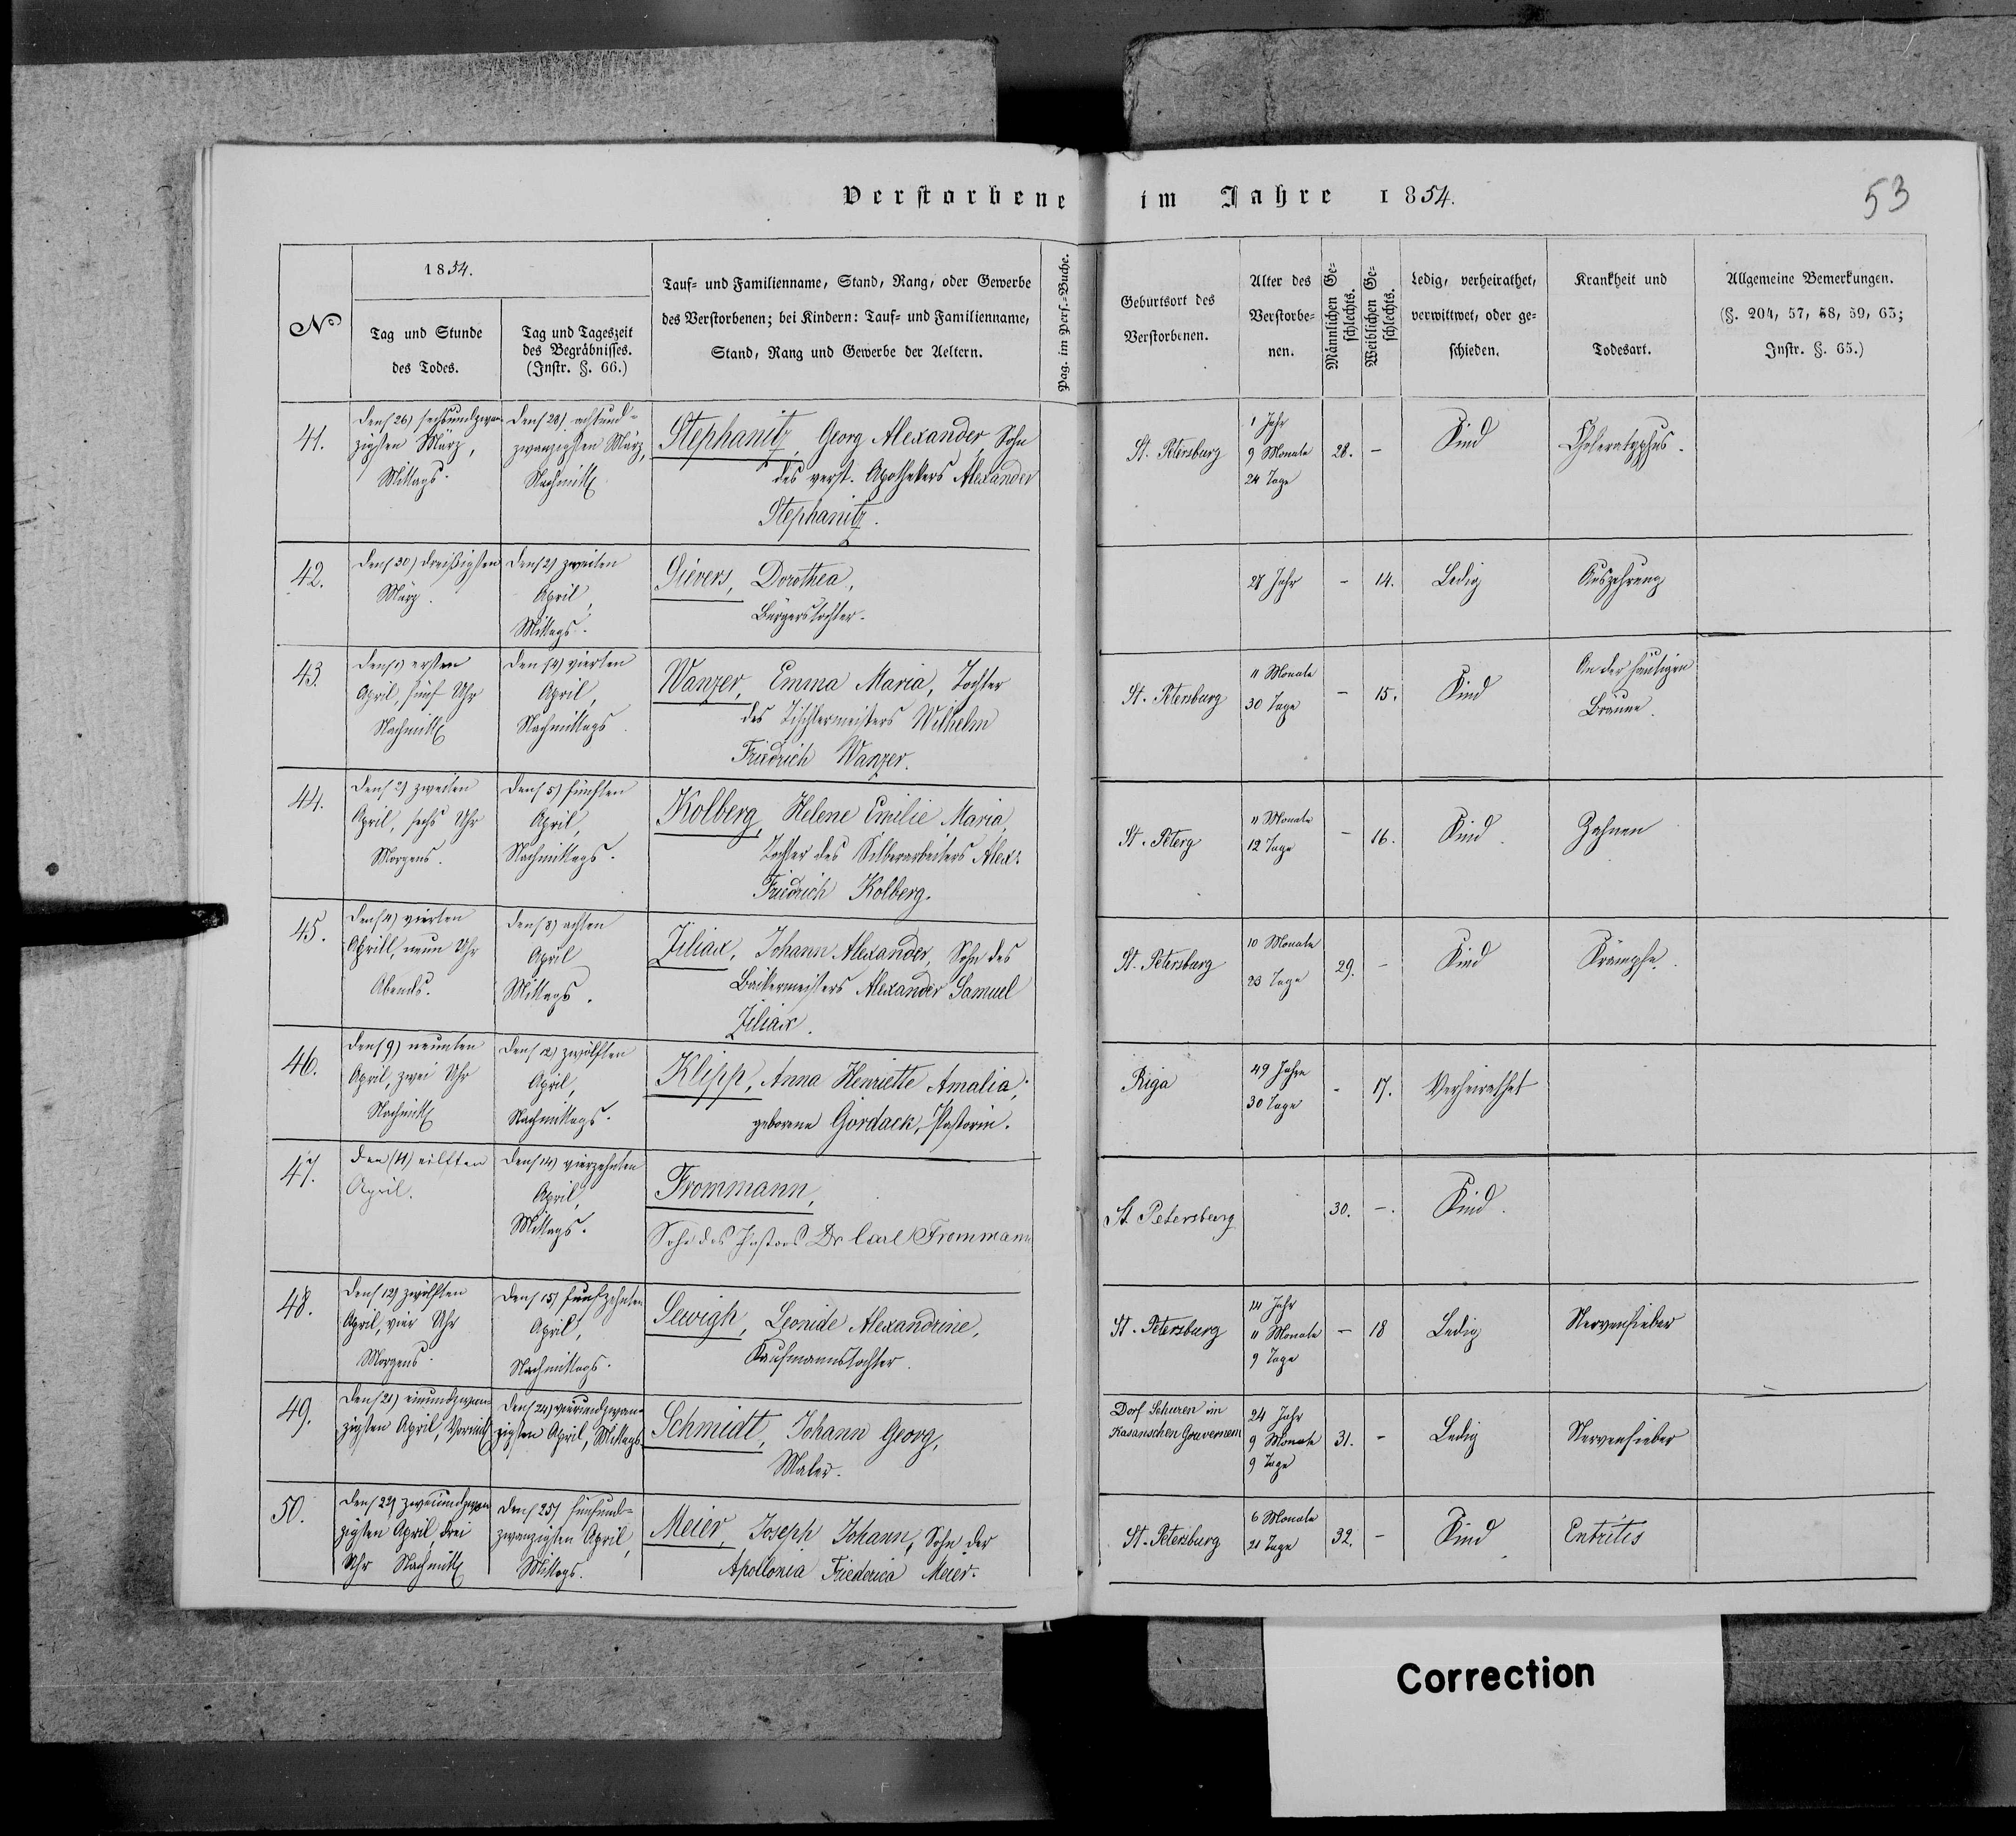 Verstorbene im Jahre 1854.
53
No
1854.
Tag und Stunde
des Todes.
Tag und Tageszeit
des Begräbnisses.
(Instr. §. 66.)
Tauf- und Familienname, Stand, Rang, oder Gewerbe
des Verstorbenen; bei Kindern: Tauf- und Familienname,
Stand, Rang und Gewerbe der Aeltern.
Pag. im Pers.-Buche.
Geburtsort des
Verstorbenen.
Alter des
Verstorbe-
nen.
Männlichen Ge-
schlechts.
Weiblichen Ge-
schlechts.
Ledig, verheirathet,
verwittwet, oder ge-
schieden.
Krankheit und
Todesart.
Allgemeine Bemerkungen.
(§. 204, 57, 58, 59, 63;
Instr. §. 65.)
41.
Den (26) sechsundzwan-
zigsten März,
Mittags.
Den (28) achtund-
zwanzigsten März,
Nachmitt
Stephanitz, Georg Alexander, Sohn
des verst. Apothekers Alexander
Stephanitz.
St. Petersburg
1 Jahr
9 Monate
24 Tage
28.
-
Kind
Choleratyphus.
42.
Den (30) dreißigsten
März.
Den (2) zweiten
April,
Mittags.
Sievers, Dorothea,
Bürgerstochter.
27 Jahr
-
14.
Ledig
Auszehrung
43.
Den (1) ersten
April, fünf Uhr
Nachmitt
Den (4) vierten
April,
Nachmittags
Wanzer, Emma Maria, Tochter
des Tischlermeisters Wilhelm
Friedrich Wanzer.
St. Petersburg
11 Monate
30 Tage
-
15.
Kind
An der häutigen
Bräune.
44.
Den (2) zweiten
April, sechs Uhr
Morgens.
Den (5) fünften
April,
Nachmittags.
Kolberg, Helene Emilie Maria,
Tochter des Silberarbeiters Alex.
Friedrich Kolberg.
St. Peterg
11 Monate
12 Tage
-
16.
Kind
Zahnen
45.
Den (4) vierten
April, neun Uhr
Abends.
Den (8) achten
April
Mittags.
Ziliax, Johann Alexander, Sohn des
Bäckermeisters Alexander Samuel
Ziliax.
St. Petersburg
10 Monate
23 Tage
29.
-
Kind
Krämpfe.
46.
Den (9) neunten
April, zwei Uhr
Nachmitt
Den (12) zwölften
April,
Nachmittags.
Klipp, Anna Henriette Amalia,
geborene Gordack, Pastorin.
Riga
49 Jahre
30 Tage
-
17.
Verheirathet
47.
Den (11) eilften
April.
Den (14) vierzehnten
April,
Mittags.
Frommann,
Sohn des Pastors Dr Carl Frommann
St Petersburg
30.
-.
Kind.
48.
Den (12) zwölften
April, vier Uhr
Morgens.
Den (15) fünfzehnten
April,
Nachmittags.
Sewigh, Leonide Alexandrine,
Kaufmannstochter.
St. Petersburg
14 Jahr
11 Monate
9 Tage
-
18
Ledig
Nervenfieber
49.
Den (21) einundzwan-
zigsten April, Vormitt
Den (24) vierundzwan-
zigsten April, Mittags
Schmidt, Johann Georg,
Maler.
Dorf Schuren im
Kasanschen Gouvernem
24 Jahr
9 Monate
9 Tage
31.
-
Ledig
Nervenfieber
50.
Den (22) zweiundzwan-
zigsten April, drei
Uhr Nachmitt
Den (25) fünfund-
zwanzigsten April,
Mittags.
Meier, Joseph Johann, Sohn der
Apollonia Friederica Meier.
St. Petersburg
6 Monate
21 Tage
32.
-
Kind
Entritis
Correction